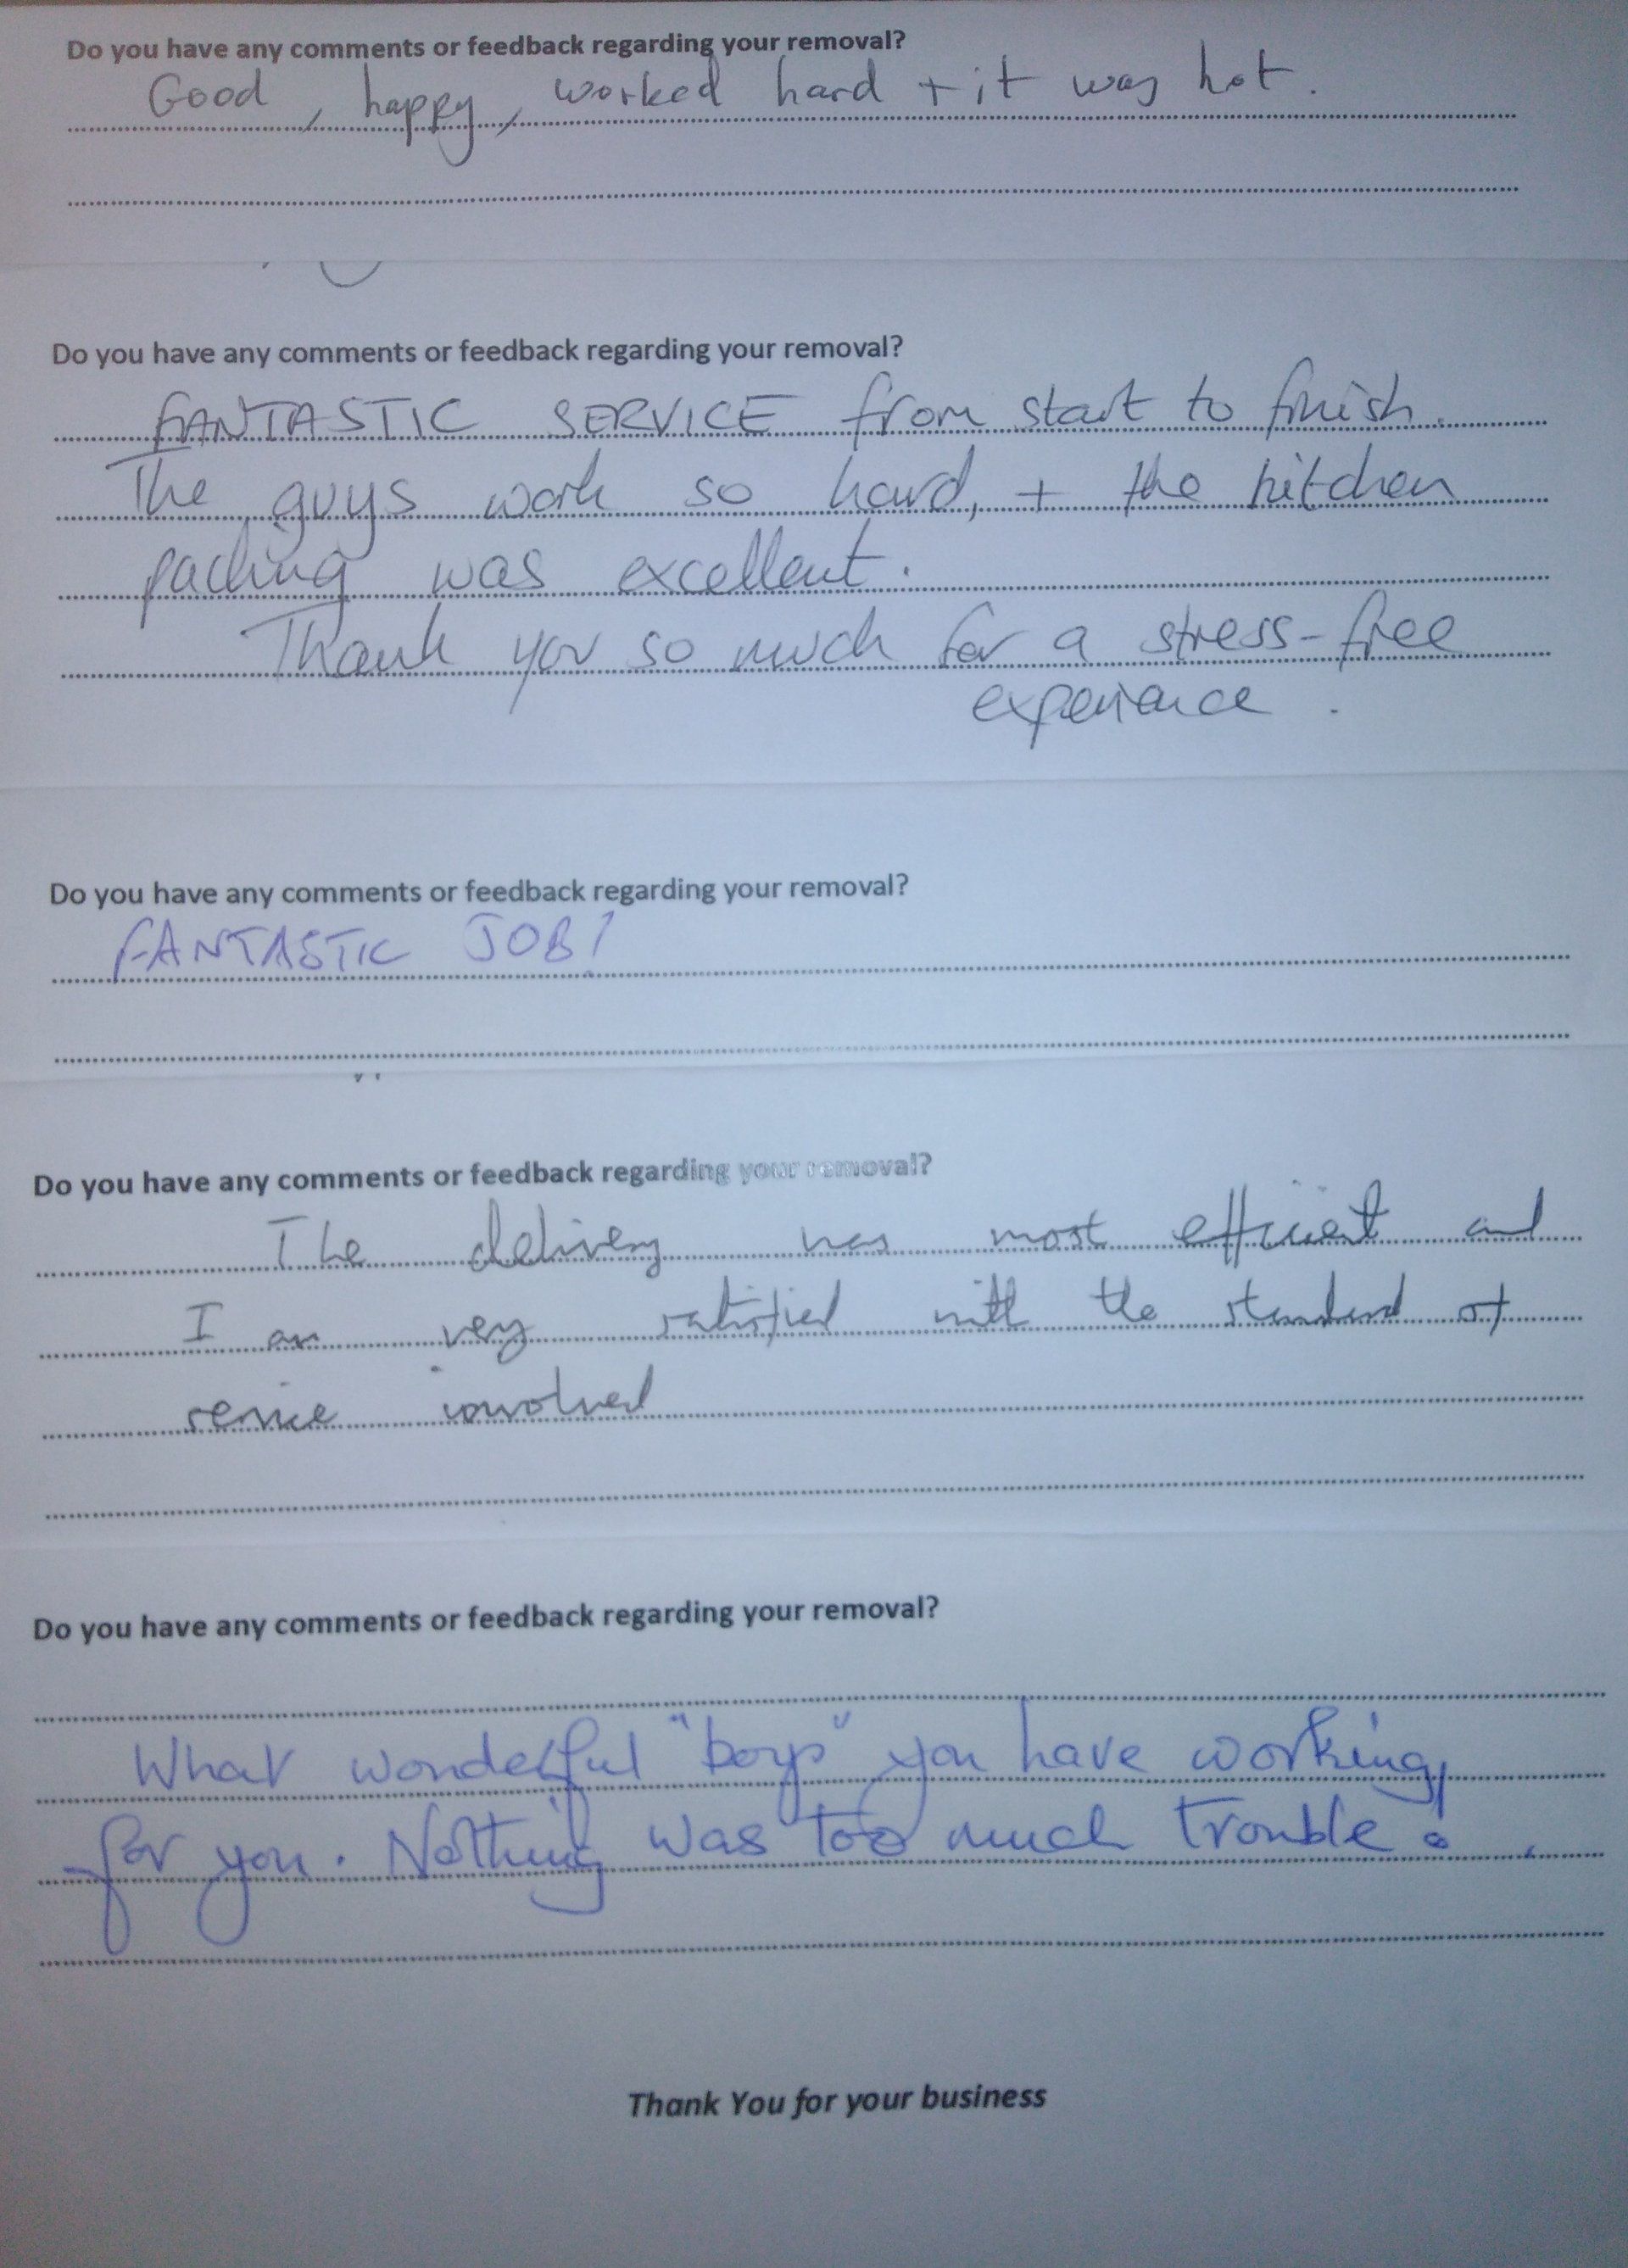 Do you have any comments or feedback regarding your removal?
Good, happy, worked hard + it was hot.
Do you have any comments or feedback regarding your removal?
FANTASTIC SERVICE from start to finish.
The guys work so hard, + the kitchen
packing was excellent.
Thank you so much for a stress-free
experience.
Do you have any comments or feedback regarding your removal?
FANTASTIC JOB!
Do you have any comments or feedback regarding your removal?
The delivery was most efficient and
I am very satisfied with the standard of
service involved
Do you have any comments or feedback regarding your removal?
What wonderful "boys" you have working
for you. Nothing was too much trouble.
Thank You for your business